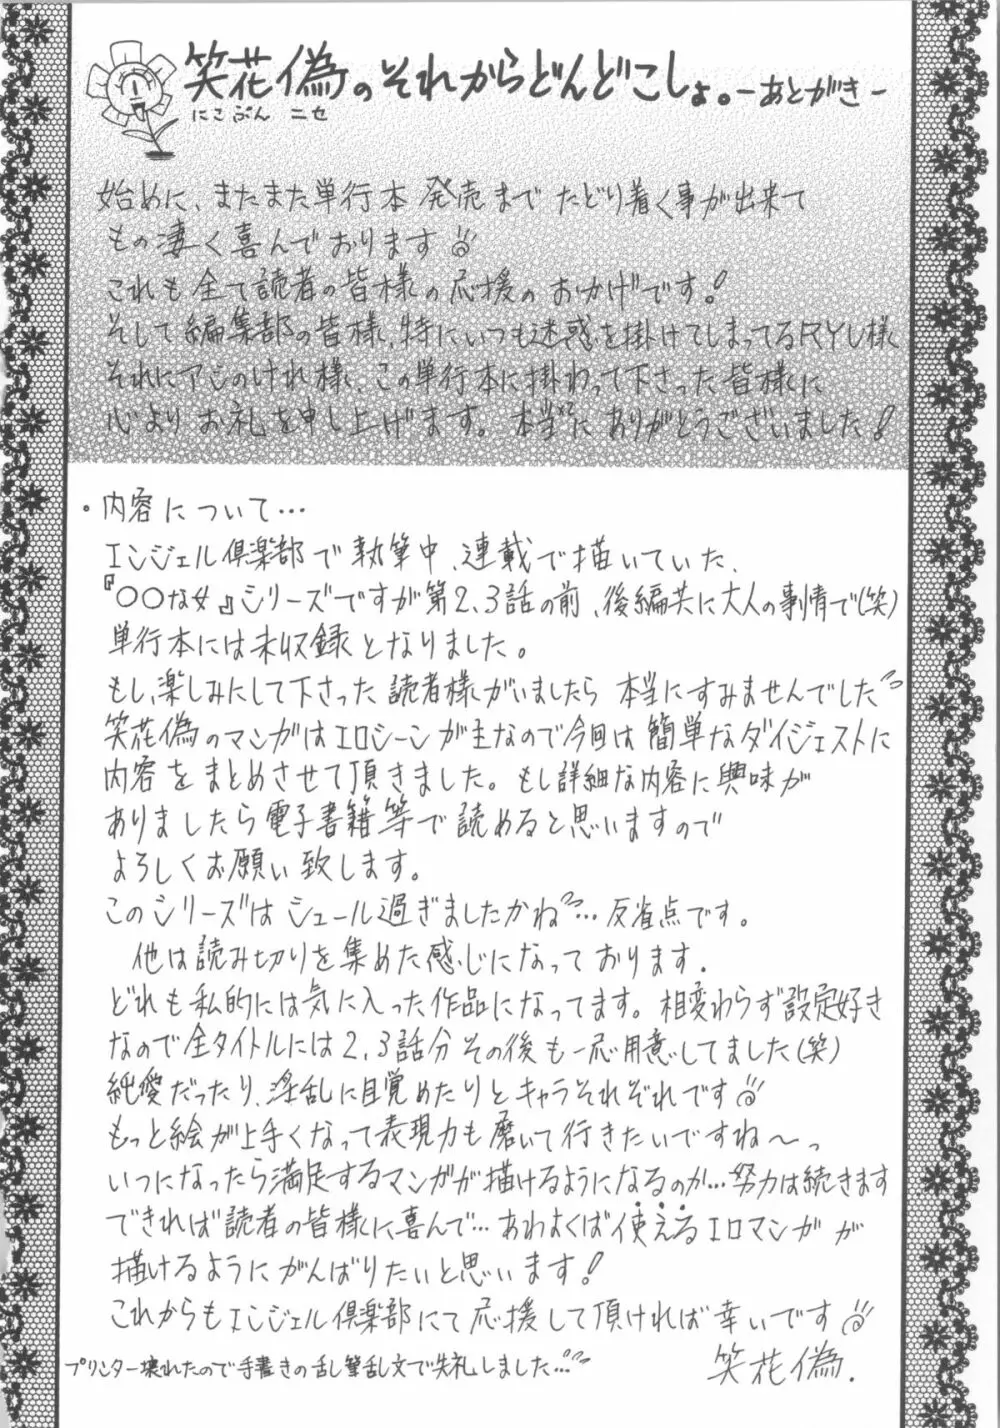 笑花偽のそれからどんどこしょ。－あとがき－
にこぷん ニセ
始めに、またまた単行本 発売まで たどり着く事が出来て
もの凄く喜んでおります
これも全て読者の皆様の応援のおかげです！
そして編集部の皆様、特にいつも迷惑を掛けてしまってるRYU様
それにアシのけれ様、この単行本に掛わって下さった皆様に
心よりお礼を申し上げます。本当にありがとうございました！
。内容について…
エンジェル倶楽部で執筆中、連載で描いていた、
『〇〇な女』シリーズですが第2、3話の前、後編共に大人の事情で(笑)
単行本には未収録となりました。
もし、楽しみにして下さった読者様がいましたら 本当にすみませんでした
笑花偽のマンガはエロシーンが主なので今回は簡単なダイジェストに
内容をまとめさせて頂きました。もし詳細な内容に興味が
ありましたら電子書籍等で読めると思いますので
よろしくお願い致します。
このシリーズはシュール過ぎましたかね…反省点です。
他は読み切りを集めた感じになっております。
どれも私的には気に入った作品になってます。相変わらず設定好き
なので全タイトルには2、3話分その後も一応用意してました(笑)
純愛だったり、淫乱に目覚めたりとキャラそれぞれです
もっと絵が上手くなって表現力も磨いて行きたいですね〜っ
いつになったら満足するマンガが描けるようになるのか…努力は続きます
できれば読者の皆様に喜んで…あわよくば使えるエロマンガが
描けるようにがんばりたいと思います！
これからもエンジェル倶楽部にて応援して頂ければ幸いです
プリンター壊れたので手書きの乱筆乱文で失礼しました…
笑花偽.